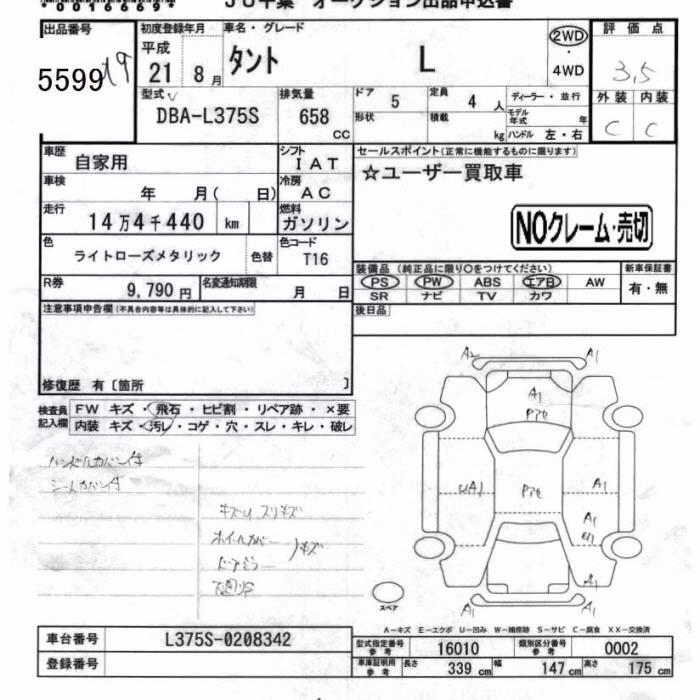 ・0016669・
JU千葉 オークション出品申込書
出品番号 初度登録年月 車名・グレード 評価点
5599 平成 21年 8月 タント L 2WD・4WD 3.5
外装 内装
C C
型式 DBA-L375S 排気量 658 CC ドア 5 定員 4 人 ディーラー・並行
形状 積載 kg モデル年式 年
ハンドル 左・右
車歴 自家用 シフト IAT セールスポイント(正常に機能するものに限ります)
車検 年 月( 日) 冷房 AC ☆ユーザー買取車
走行 14万4千440 km 燃料 ガソリン NOクレーム・売切
色 ライトローズメタリック 色替 色コード T16
装備品 (純正品に限り○をつけてください) 新車保証書
R券 9,790円 名変通知期限 月 日 PS PW ABS エアB AW 有・無
SR ナビ TV カワ
注意事項申告欄(不具合内容等は具体的に記入して下さい) 後日品
修復歴 有〔箇所 〕
検査員記入欄 FW キズ・飛石・ヒビ割・リペア跡・×要
内装 キズ・汚レ・コゲ・穴・スレ・キレ・破レ
ハンドルカバー付
シートカバー付
キズU スリキズ
ホイールカバー
キズ
ドアミラー
下廻りS
A2 A1
A1
Pアセ
UA1 Pアセ A1
A1
A1
A1 A1
スペア
A-キズ E-エクボ U-凹み W-補修跡 S-サビ C-腐食 XX-交換済
車台番号 L375S-0208342 型式指定番号 参考 16010 類別区分番号 参考 0002
登録番号 車庫証明用 参考 長さ 339 cm 幅 147 cm 高さ 175 cm